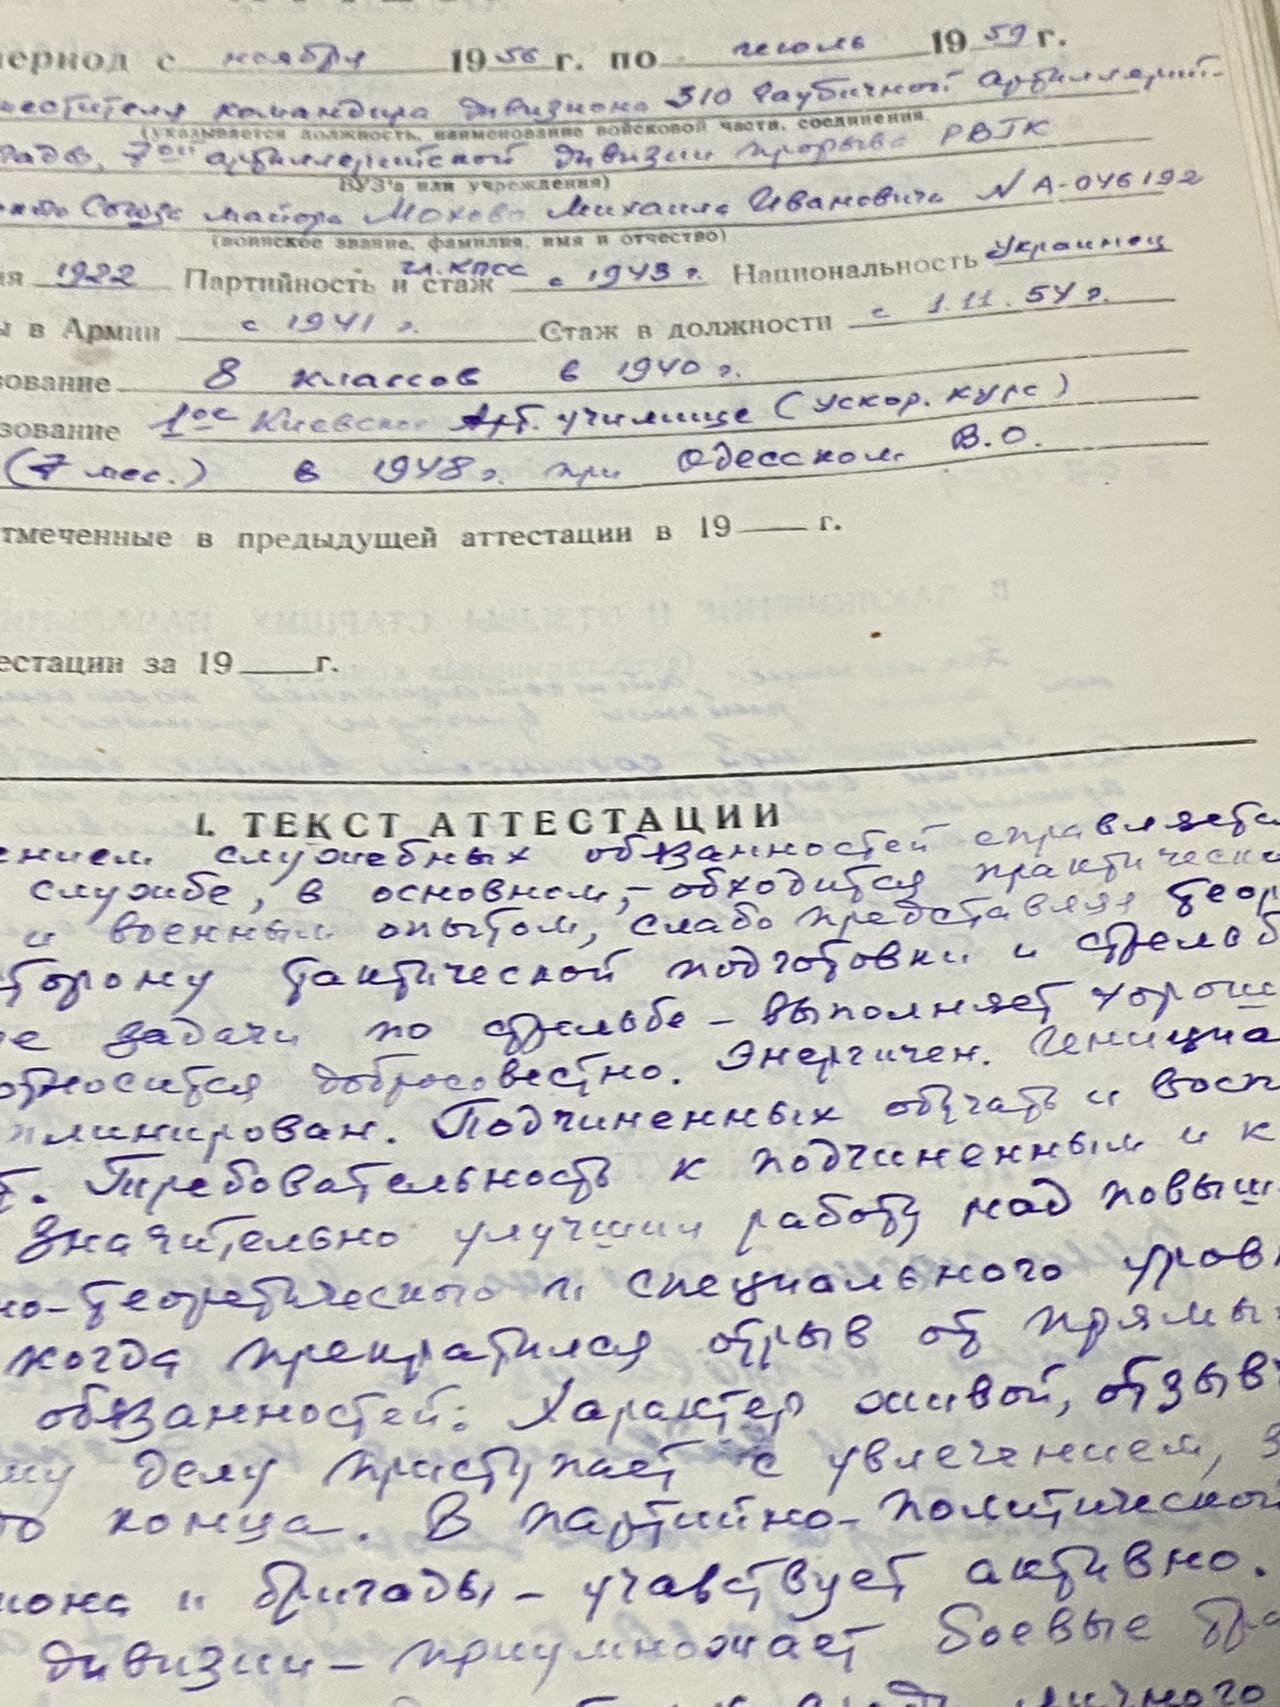 период с ноября 1956 г. по июль 1959 г.
командира дивизиона 310 Гаубичной артиллерий-
(указывается должность, наименование войсковой части, соединения,
7ой артиллерийской дивизии прорыва РВГК
ВУЗ'а или учреждения)
Союза майора Мохова Михаила Ивановича N А-046192
(воинское звание, фамилия, имя и отчество)
ия 1922 Партийность и стаж чл. КПСС с 1943 г. Национальность Украинец
ы в Армии с 1941 г. Стаж в должности с 1.11.54 г.
зование 8 классов в 1940 г.
зование 1ое Киевское Арт. училище (ускор. курс)
(7 мес.) в 1948 г. при Одесском В.О.
тмеченные в предыдущей аттестации в 19 г.
естации за 19 г.
I. ТЕКСТ АТТЕСТАЦИИ
ением служебных обязанностей справляется
службе, в основном, – обходится практически
и военным опытом, слабо представляя теор
торону тактической подготовки и стрельб
е задачи по стрельбе – выполняет хорош
относится добросовестно. Энергичен. Инициа
плинирован. Подчиненных обучать и восп
т. Требовательность к подчиненным и к
Значительно улучшил работу над повыш
но-теоретического и специального уровн
когда прекратился отрыв от прямы
обязанностей: Характер живой, отзыв
му делу приступает с увлечением,
до конца. В партийно-политической
иона и бригады – учавствует активно.
дивизии – приумножает боевые тра
личного